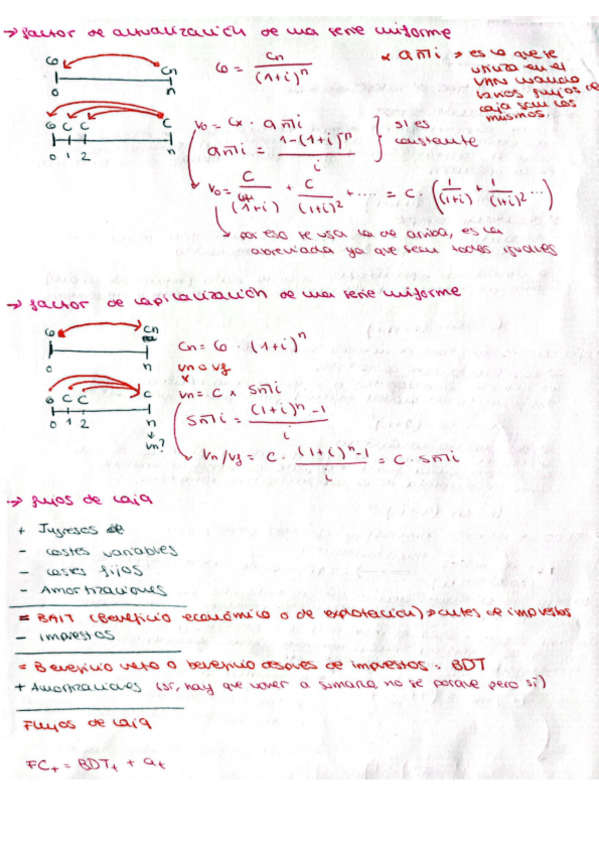 → factor de actualización de una serie uniforme
C0 Cn
0 n
C0 = Cn / (1+i)^n
* an̅i → es lo que se utiliza en el VAN cuando varios flujos de caja son los mismos.
C0 C C C
0 1 2 n
V0 = Cx · an̅i
an̅i = 1-(1+i)^n / i
} si es constante
V0 = C / (1+i) + C / (1+i)^2 + ..... = C · (1/(1+i) + 1/(1+i)^2 ...)
↳ por eso se usa la de arriba, es la abreviada ya que sean todos iguales
→ factor de capitalización de una serie uniforme
C0 Cn
0 n
Cn = C0 · (1+i)^n
Vn o Vf
C0 C C C
0 1 2 n
Vn?
Vn = C x Sn̅i
Sn̅i = (1+i)^n - 1 / i
Vn/Vf = C · (1+i)^n - 1 / i = C · Sn̅i
→ flujos de caja
+ Ingresos
- costes variables
- costes fijos
- Amortizaciones
= BAIT (Beneficio económico o de explotación) → antes de impuestos
- impuestos
= Beneficio neto o beneficio después de impuestos : BDT
+ Amortizaciones (sí, hay que volver a sumarla, no se porque pero sí)
Flujos de caja
FCt = BDTt + at